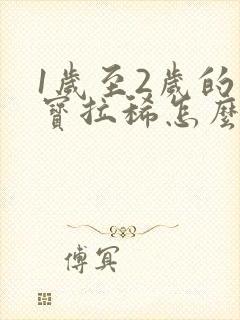 1歲至2歲的
寶拉稀怎麼
傅冥